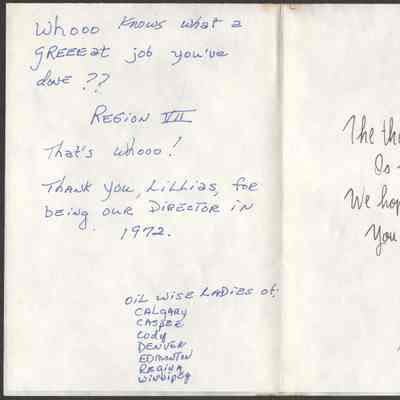 Whooo knows what a
GREEEat job you've
done ??
REGION VII
That's Whooo!
THANK YOU, LILLIAS, for
being our DIRECTOR in
1972.
OIL WISE LADIES of:
CALGARY
CASPER
Cody
DENVER
EDMONTON
REGINA
Winnipeg
The
Is
We
You